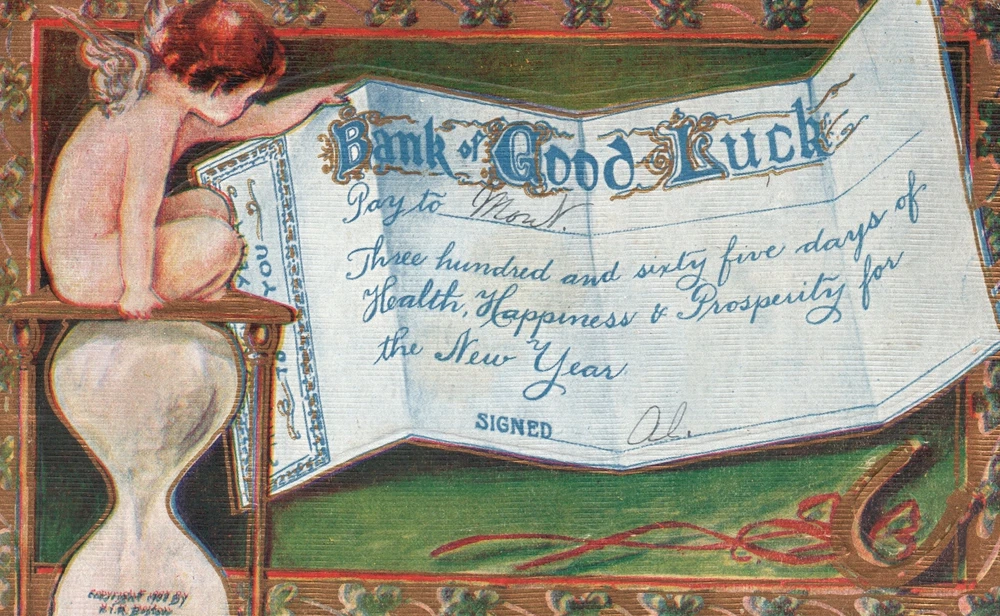 Bank of Good Luck
Pay to Mont.
Three hundred and sixty five days of
Health, Happiness & Prosperity for
the New Year
SIGNED Al.
YOU
TO
COPYRIGHT BY